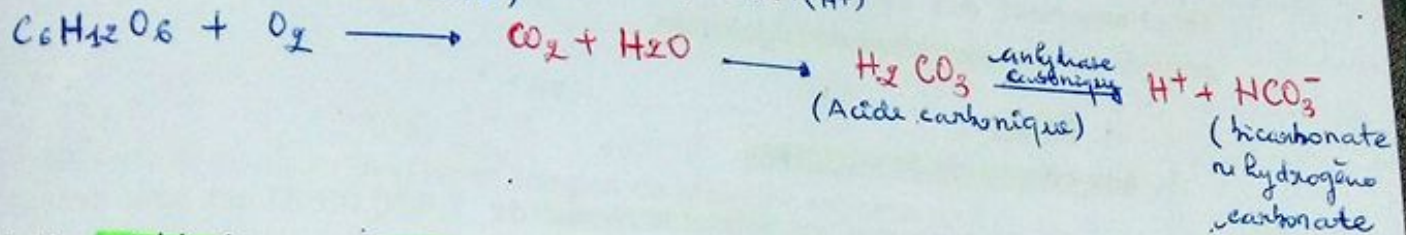 C6H12O6 + O2 ⟶ CO2 + H2O ⟶ H2CO3 anhydrase carbonique ⟶ H⁺ + HCO3⁻
(Acide carbonique) (bicarbonate
hydrogéno
carbonate